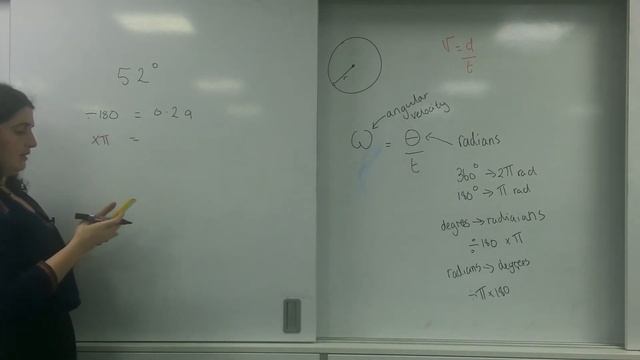 52°
÷180 = 0.29
×π =
r
v = d/t
angular velocity
ω = θ/t
radians
360° → 2π rad
180° → π rad
degrees → radigians
÷ 180 × π
radians → degrees
÷π × 180